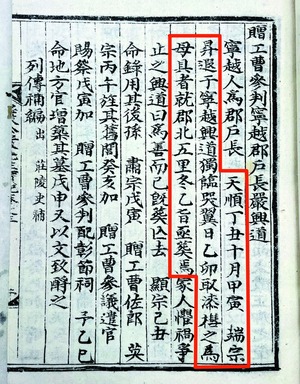 贈工曹參判寧越郡戶長嚴興道
寧越人爲郡戶長 天順丁丑十月甲寅 端宗
昇遐于寧越興道獨臨哭翼日乙卯取漆櫬之爲
母具者就郡北五里冬乙旨亟葬焉家人懼禍爭
止之興道曰爲善而已旣葬亾去 顯宗己丑
命錄用其後孫 肅宗戊寅 贈工曹佐郎 英
宗丙午旌其舊閭癸亥加 贈工曹參議遣官
賜祭戊寅加 贈工曹參判配彰節祠 予乙巳
命地方官增築其墓戊申又以文致酹之
列傳補編出 莊陵史補